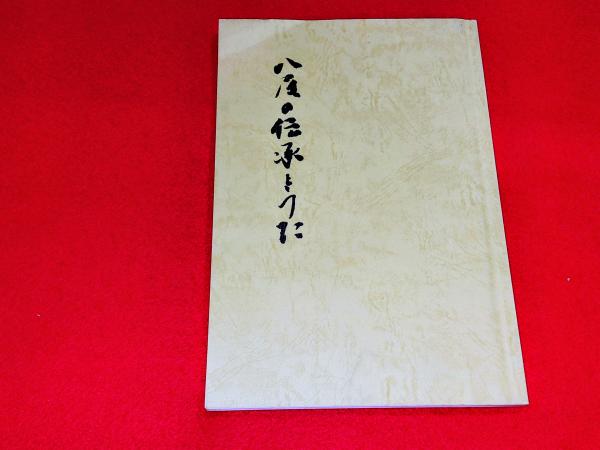 八尾の伝承とうた